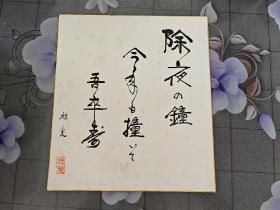 除夜の鐘
今年も撞いて
吾卒寿
旭光